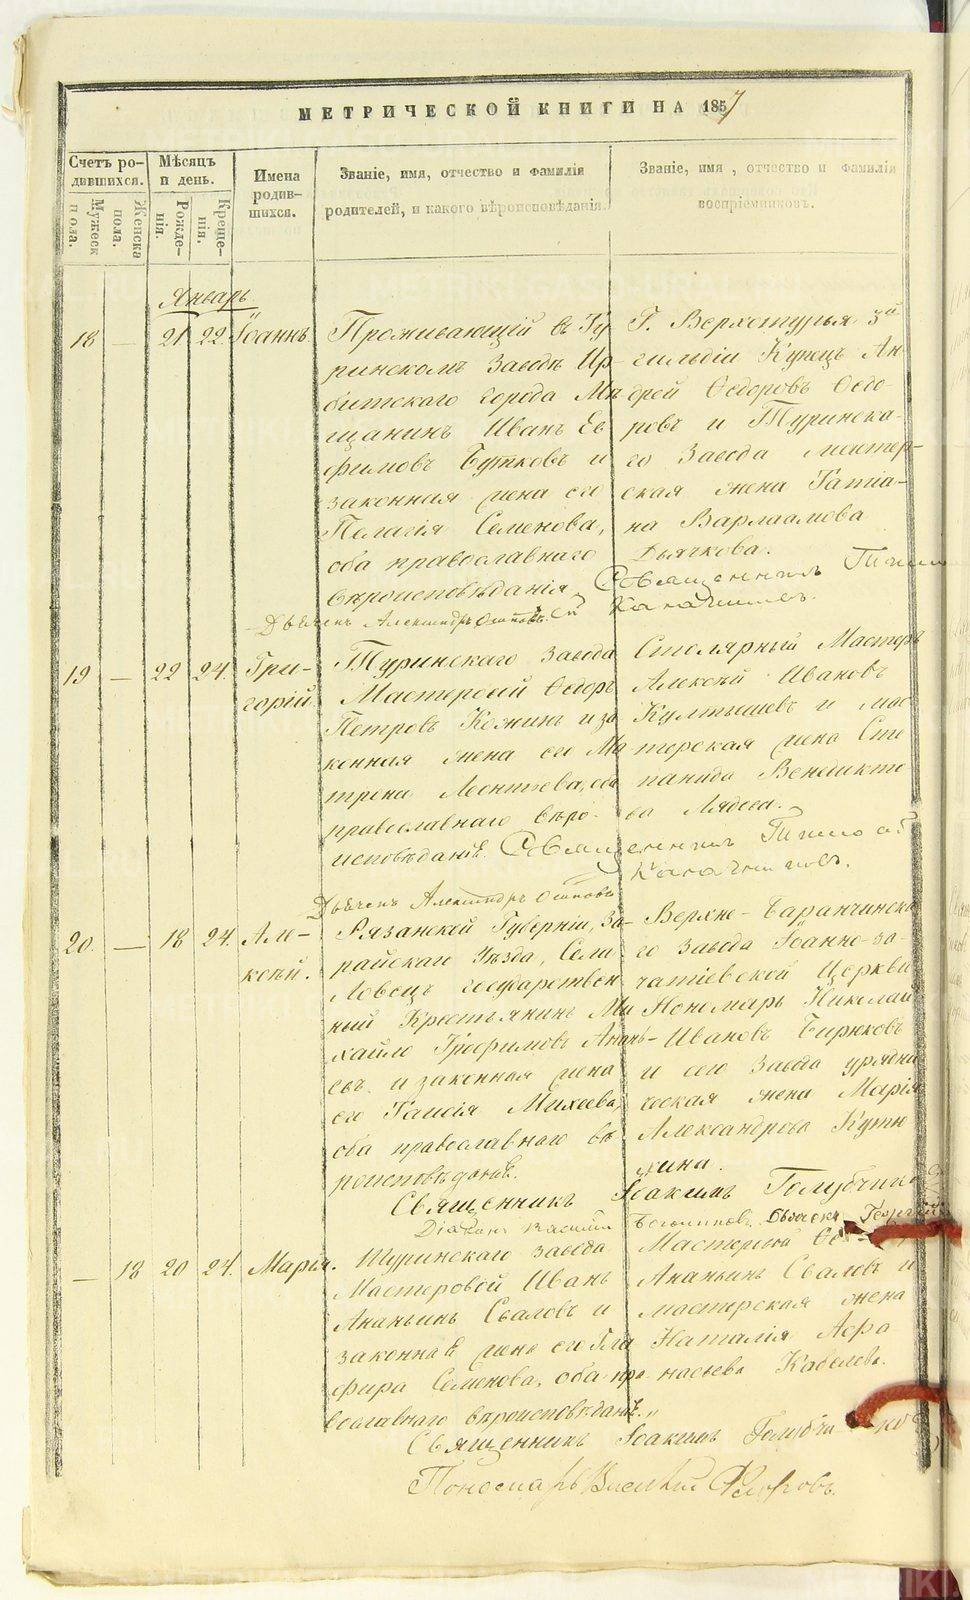 МЕТРИЧЕСКОЙ КНИГИ НА 1857
Счетъ ро-
дившихся.
Мужеск
пола.
Женска
пола.
Мѣсяцъ
и день.
Рожде-
нія.
Креще-
нія.
Имена
родив-
шихся.
Званіе, имя, отчество и фамилія
родителей, и какого вѣроисповѣданія.
Званіе, имя, отчество и фамилія
воспріемниковъ.
Январь
18 — 21 22 Іоаннъ
Проживающій въ Ту
ринскомъ Заводѣ Ир-
битскаго города Мѣ
щанинъ Иванъ Ев
фимовъ Бутковъ и
законная жена его
Пелагія Семенова,
оба православнаго
вѣроисповѣданія
Г. Верхотурья 3й
гильдіи Купецъ Ан
дрей Ѳедоровъ Ѳедо
ровъ и Туринска-
го Завода мастер-
ская жена Татіа-
на Варлаамова
Дьячкова.
Священникъ
Дьячекъ Александръ Осиповъ
19 — 22 24. Гри-
горій
Туринскаго Завода
Мастеровой Ѳедоръ
Петровъ Кожинъ и за
конная жена его Ма
трона Леонтьева, оба
православнаго вѣро-
исповѣданіѣ.
Столярный Мастеръ
Алексѣй Ивановъ
Култышевъ и мас
терская жена Сте
панида Венедикто
ва Лядова.
Священникъ
Дьячекъ Александръ Осиповъ
20. — 18 24. Але-
ксѣй.
Рязанской Губерніи, За-
райскаго Уѣзда, Села
Ловецъ государствен
ный Крестьянинъ Ми
хайло Трофимовъ Анань-
евъ и законная жена
его Таисія Михеева,
оба православнаго вѣ
роисповѣданіѣ.
Верхне-Баранчинска
го Завода Іоанно-за-
чатіевской Церкви
Пономарь Николай
Ивановъ Бирюковъ
и того Завода урядни
ческая жена Марія
Александрова Кутю
хина.
Священникъ Іоакимъ Голубчико
Діаконъ Василій Дьячекъ Георгій
— 18 20 24. Марія.
Туринскаго Завода
Мастеровой Иванъ
Ананьинъ Сваловъ и
законнаѣ жена его Гла
фира Семенова, оба пра
вославнаго вѣроисповѣданіѣ.
Мастеровой
Ананьинъ Сваловъ и
мастерская жена
Наталія Аѳа
насьева Кабелева.
Священникъ Іоакимъ Голубчиковъ
Пономарь Василій